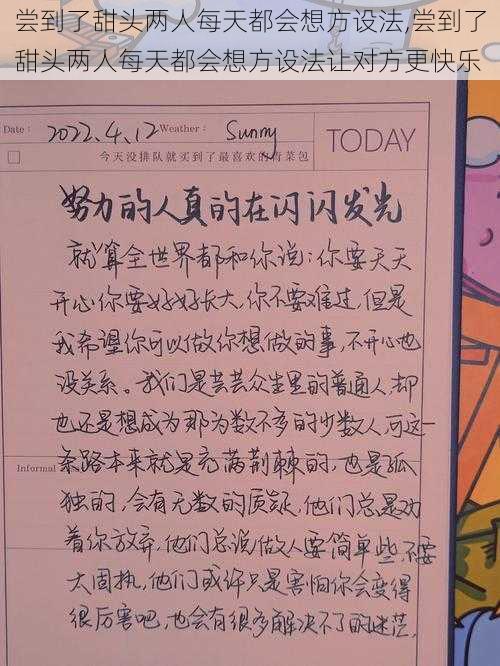 尝到了甜头两人每天都会想方设法,尝到了
甜头两人每天都会想方设法让对方更快乐
Date: 2022.4.12 Weather: Sunny TODAY
今天没排队就买到了最喜欢的青菜包
努力的人真的在闪闪发光
就算全世界都和你说:你要天天
开心你要好好长大,你不要难过,但是
我希望你可以做你想做的事,不开心也
没关系。我们是芸芸众生里的普通人,却
也还是想成为那为数不多的少数人,可这一
Informal
条路本来就是充满荆棘的,也是孤
独的,会有无数的质疑,他们总是劝
着你放弃,他们总说做人要简单些,不要
太固执,他们或许只是害怕你会变得
很厉害吧,也会有很多解决不了的迷茫,